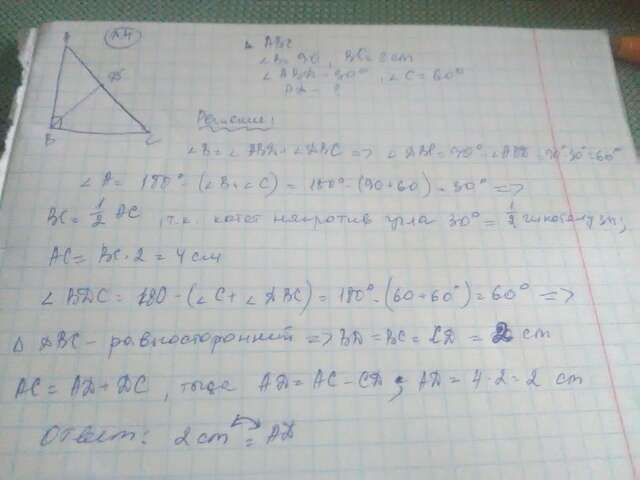 △ ABC
∠B = 90, BC = 2 cm
∠ABD = 30°, ∠C = 60°
AD - ?
A
D
B
C
Решение:
∠B = ∠ABD + ∠DBC => ∠DBC = 90° - ∠ABD = 90° - 30° = 60°
∠A = 180° - (∠B + ∠C) = 180° - (90 + 60) = 30° =>
BC = 1/2 AC, т.к. катет напротив угла 30° = 1/2 гипотенузы;
AC = BC · 2 = 4 см
∠BDC = 180 - (∠C + ∠DBC) = 180° - (60 + 60°) = 60° =>
△ DBC - равносторонний => BD = BC = CD = 2 cm
AC = AD + DC, тогда AD = AC - CD; AD = 4 - 2 = 2 cm
Ответ: 2 cm = AD